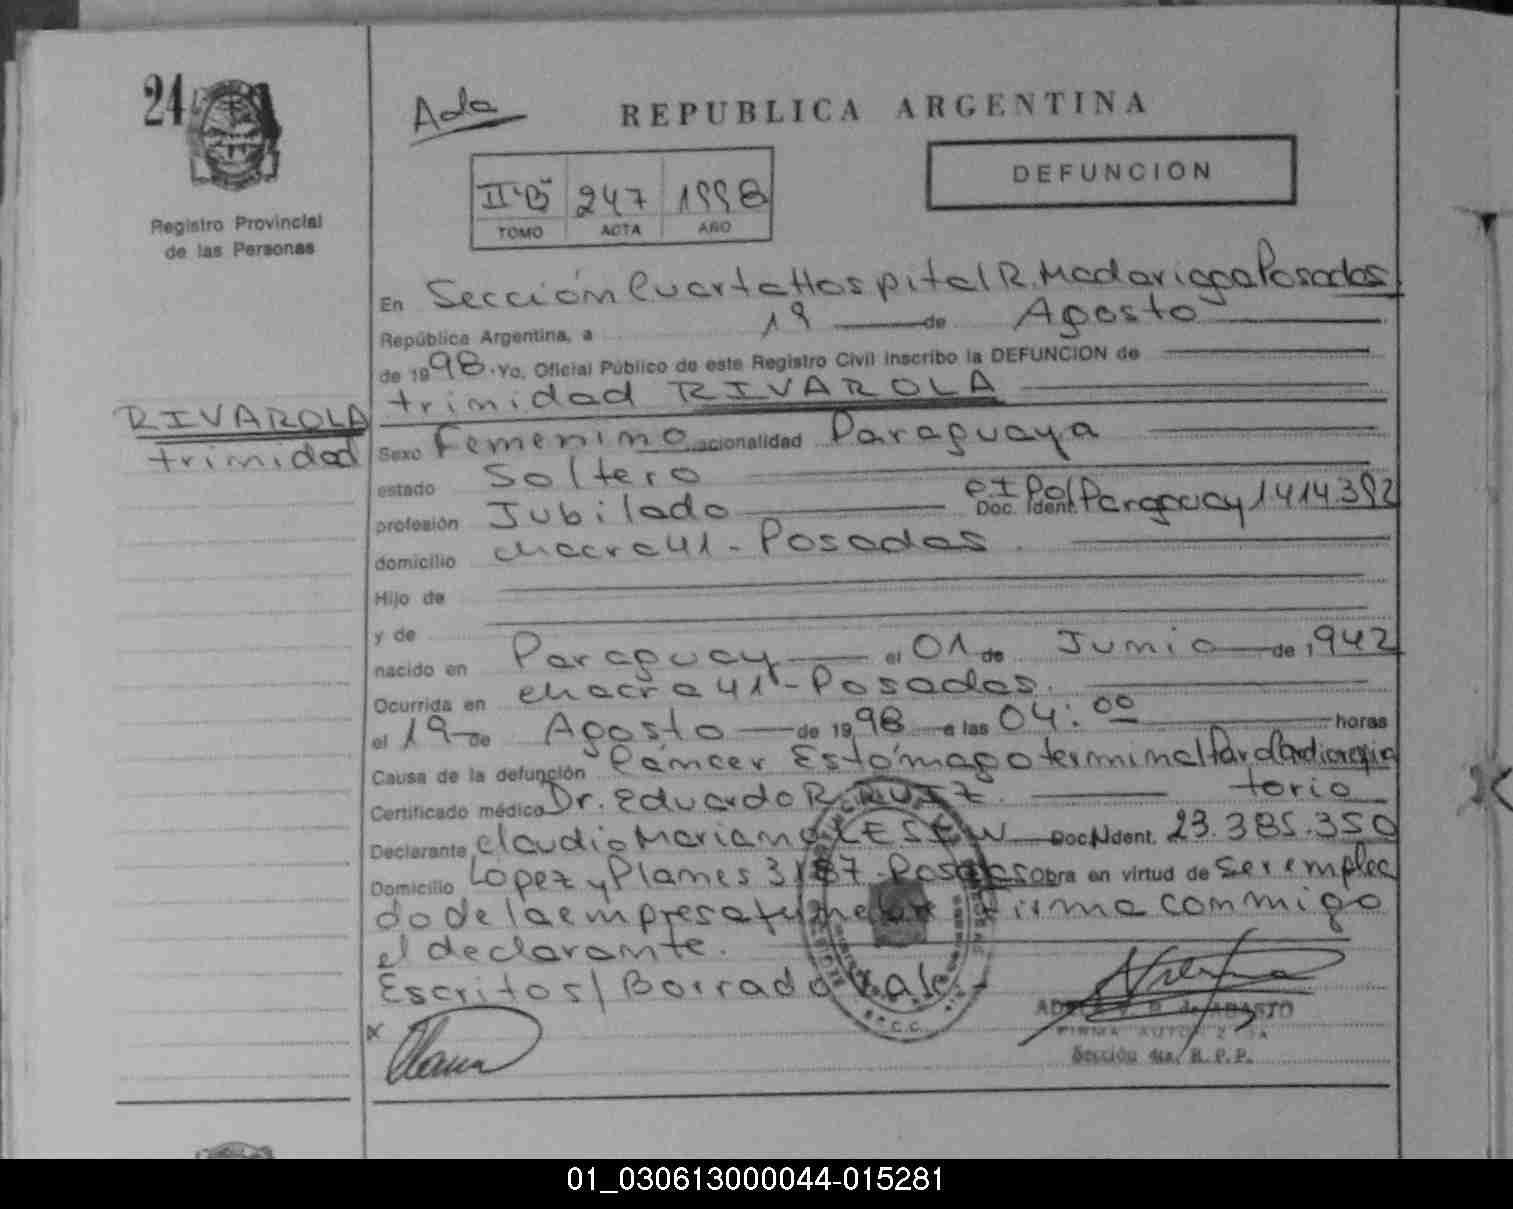 24
Ada
REPUBLICA ARGENTINA
Registro Provincial
de las Personas
II"B" 247 1998
TOMO ACTA AÑO
DEFUNCION
En Sección Cuarta Hospital R. Madariaga Posadas
República Argentina, a 19 de Agosto
de 1998. Yo, Oficial Público de este Registro Civil inscribo la DEFUNCION de
trinidad RIVAROLA
RIVAROLA
trinidad
Sexo Femenino nacionalidad Paraguaya
estado Soltero
profesión Jubilado Doc. Ident. CI Pol Paraguay 1414392
domicilio chacra 41 - Posadas
Hijo de
y de
nacido en Paraguay el 01 de Junio de 1942
Ocurrida en chacra 41 - Posadas.
el 19 de Agosto de 1998 a las 04:00 horas
Causa de la defunción Cáncer Estómago terminal Par Cardiorespia
torio
Certificado médico Dr. Eduardo R. RUIZ.
Declarante claudio Mariano LESIW Doc. Ident. 23.385.350
Domicilio Lopez y Planes 3187 - Posadas Obra en virtud de ser emplea
do de la empresa funebre Firma conmigo
el declarante.
Escritos/Borrado Vale
FIRMA AUTORIZADA
Sección 4ta. R.P.P.
01_030613000044-015281